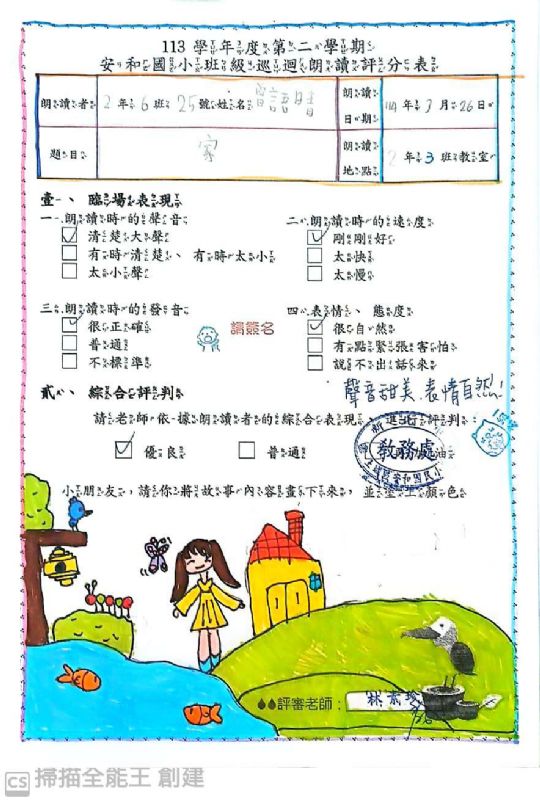 113 學年度第二學期
安和國小班級巡迴朗讀評分表
朗讀者 2年6班25號姓名
朗讀日期 114年3月26日
題目 家
朗讀地點 2年3班教室
壹、臨場表現
一、朗讀時的聲音
清楚大聲
有時清楚、有時太小
太小聲
二、朗讀時的速度
剛剛好
太快
太慢
三、朗讀時的發音
很正確
普通
不標準
請簽名
四、表情、態度
很自然
有點緊張害怕
說不出話來
聲音甜美、表情自然!
貳、綜合評判
請老師依據朗讀者的綜合表現進行評判:
優良
普通
油
教務處
小朋友,請你將故事內容畫下來,並塗上顏色
評審老師:
CS 掃描全能王 創建